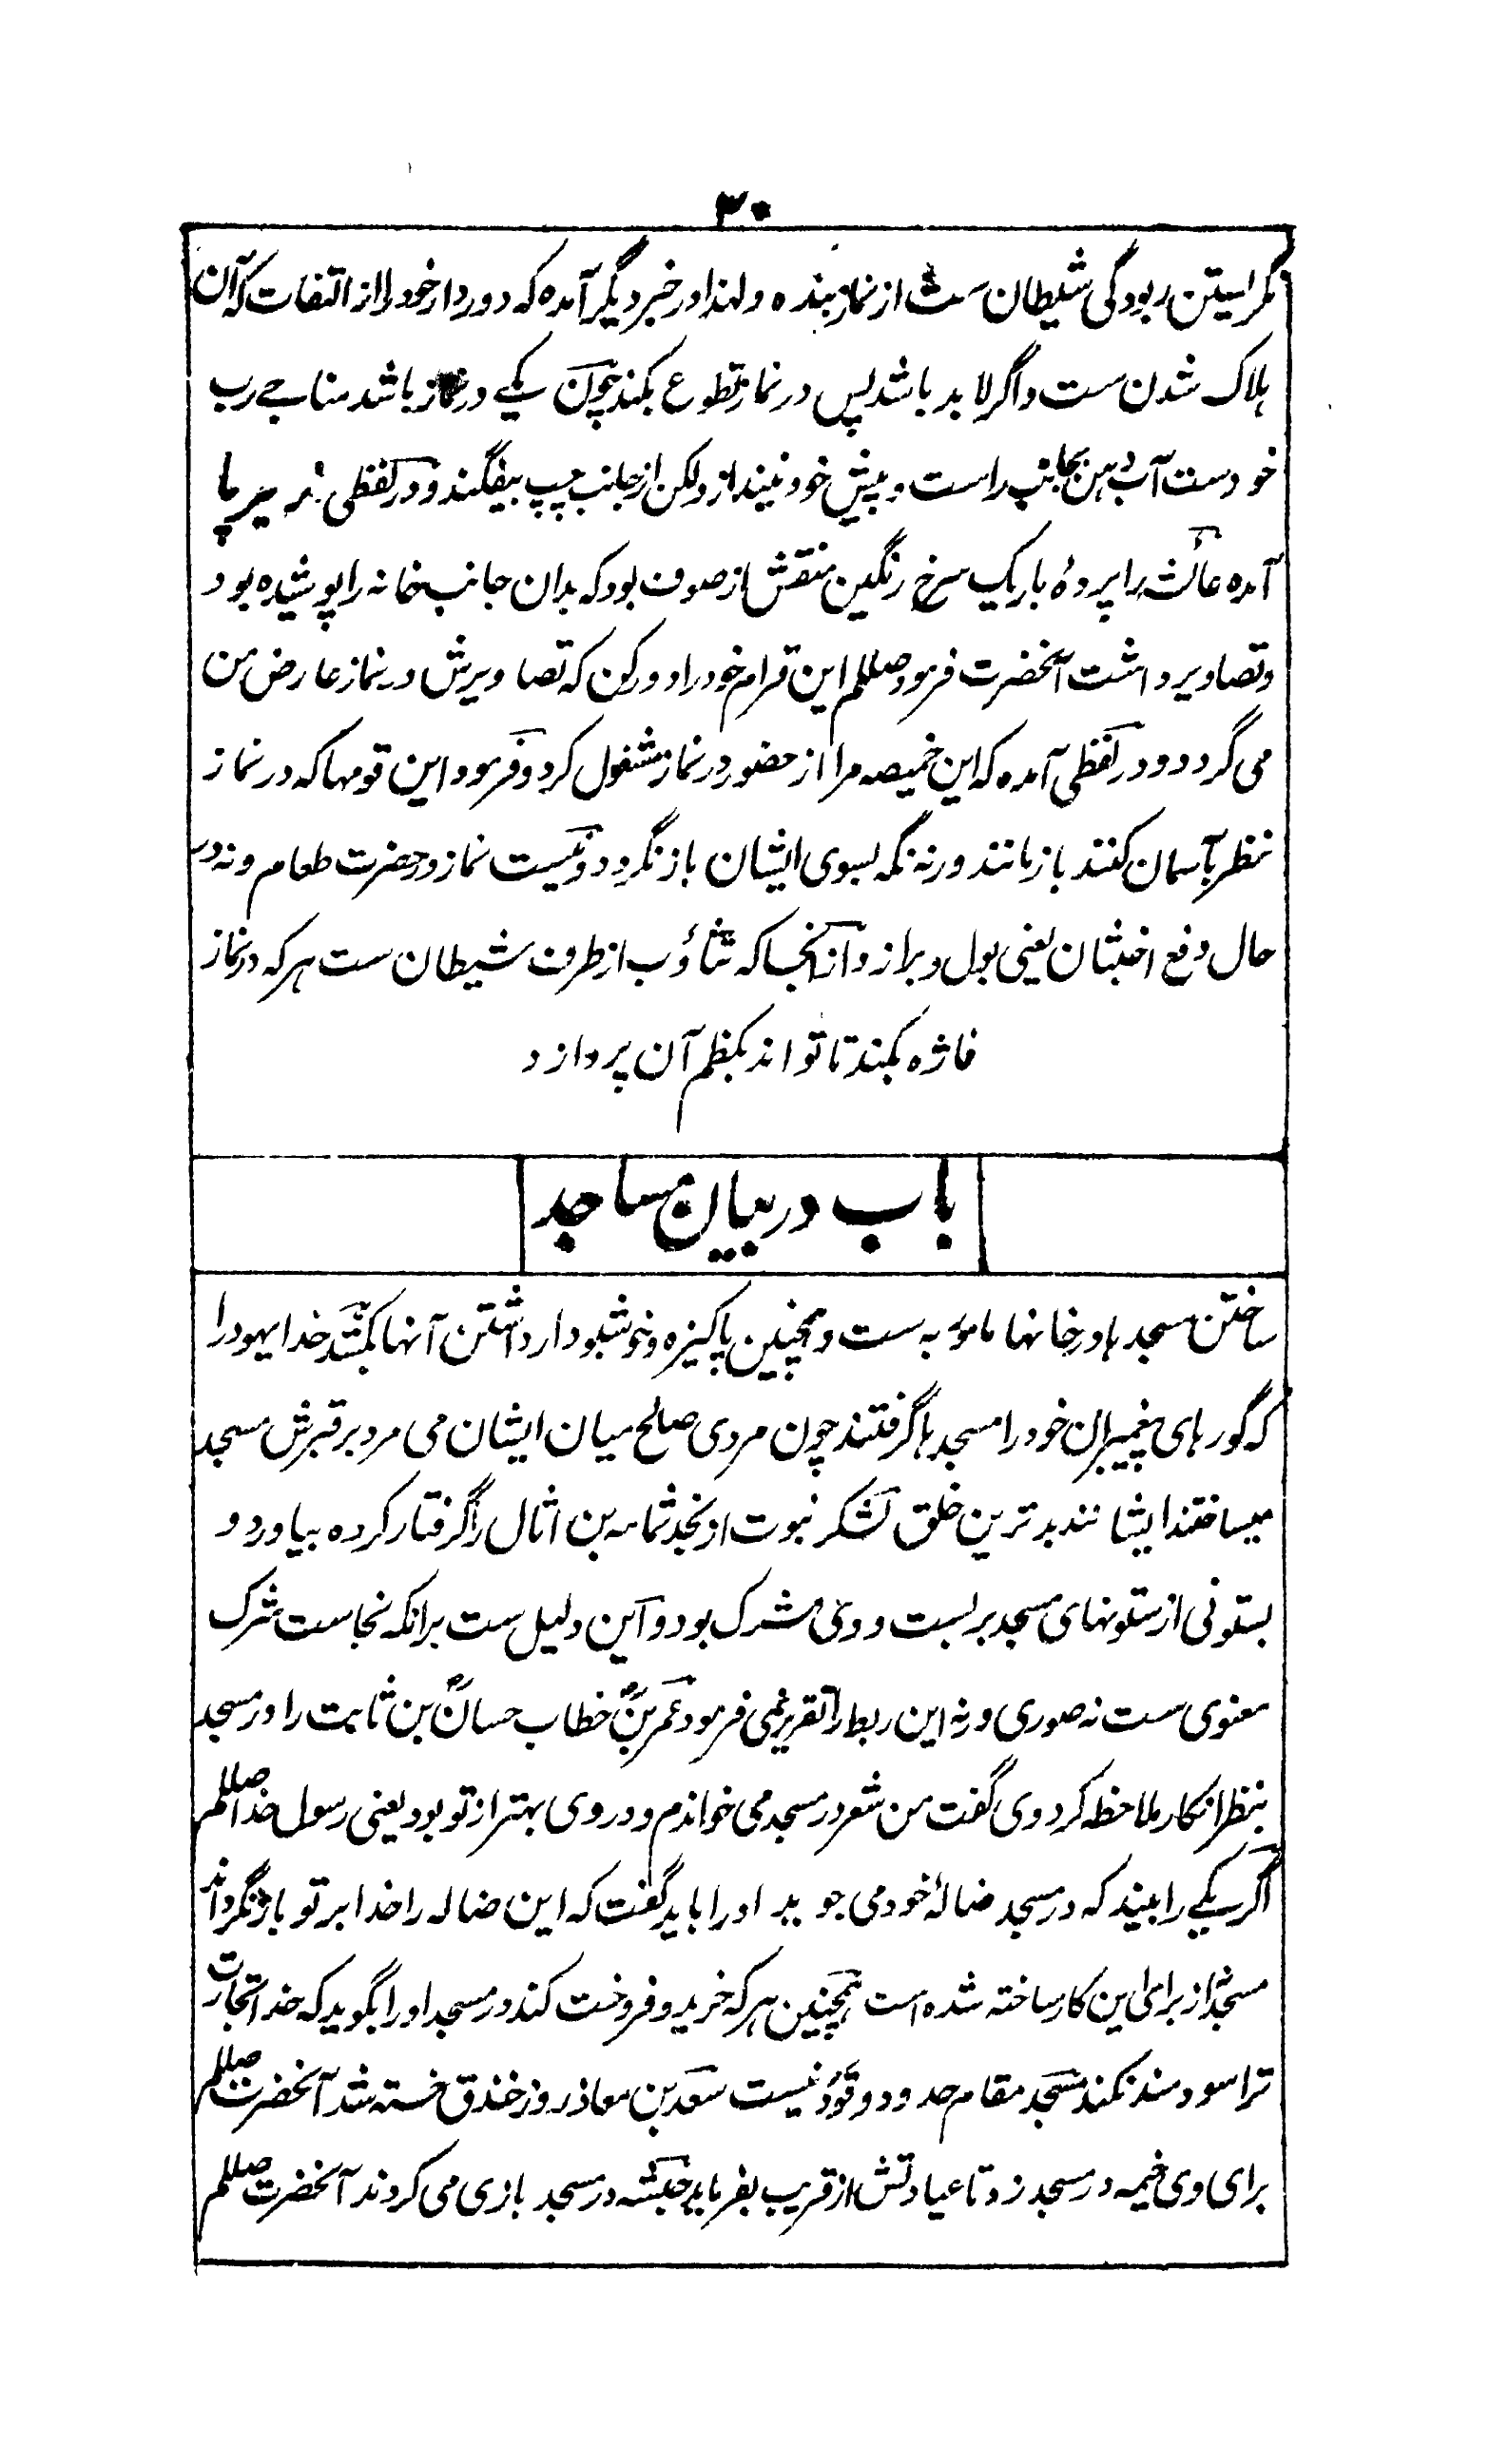 ۳۰
نگراستن ربودگی شیطان ست از نماز بنده ولهذا در خبر دیگر آمده که دور دار خود را از التفات که آن
ہلاک شدن ست و اگر لابد باشد پس در نماز تطوع بکند چون یکے در نماز باشد مناجے رب
خودست آب دہن بجانب راست و پیش خود نیندازد لکن از جانب چپ بیفگند و در لفظی زیر پا
آمده عائشہ را پردهٔ باریک سرخ رنگین منقش از صوف بود که بدان جانب خانه را پوشیده بود
و تصاویر داشت آنحضرت فرمود صللم این قرام خود را دور کن که تصاویرش در نماز عارض من
می گردد و در لفظی آمده که این خمیصه مرا از حضور در نماز مشغول کرد و فرمود این قومها که در نماز
نظر بآسمان کنند باز مانند ورنه نگه بسوی ایشان باز نگردد و نیست نماز در حضرت طعام و نه در
حال دفع اخبثان یعنی بول و براز و از آنجا که تثاؤب از طرف شیطان ست هر که در نماز
فاژه بکند تا تواند بکظم آن پردازد
باب در بیان مساجد
ساختن مسجدہا در خانہا مامور به ست و همچنین پاکیزه و خوشبودار داشتن آنها بکشد خدا یهود را
که گورہای پیغمبران خود را مسجدہا گرفتند چون مردی صالح میان ایشان می مرد بر قبرش مسجد
میساختند ایشانند بدترین خلق لشکر نبوت از نجد ثمامه بن اثال را گرفتار کرده بیاورد و
بستونی از ستونهای مسجد بربست و وی مشرک بود و این دلیل ست برانکه نجاست شرک
معنوی ست نه صوری ورنه این ربط را تقریر نمی فرمود عمر بن خطاب حسان بن ثابت را در مسجد
بنظر انکار ملاحظه کرد وی گفت من شعر در مسجد می خواندم و در وی بهتر از تو بود یعنی رسول خدا صللم
اگر یکے را بیند که در مسجد ضالهٔ خود می جوید او را باید گفت که این ضاله را خدا بر تو باز نگرداند
مسجد نه از برای این کار ساخته شده است همچنین هر که خرید و فروخت کند در مسجد او را بگوید که خدا تجارت
ترا سودمند نکند مسجد مقام حدود و قود نیست سعد بن معاذ روز خندق خسته شد آنحضرت صللم
برای وی خیمه در مسجد زد تا عیادتش از قریب بفرماید حبشه در مسجد بازی می کردند آنحضرت صللم